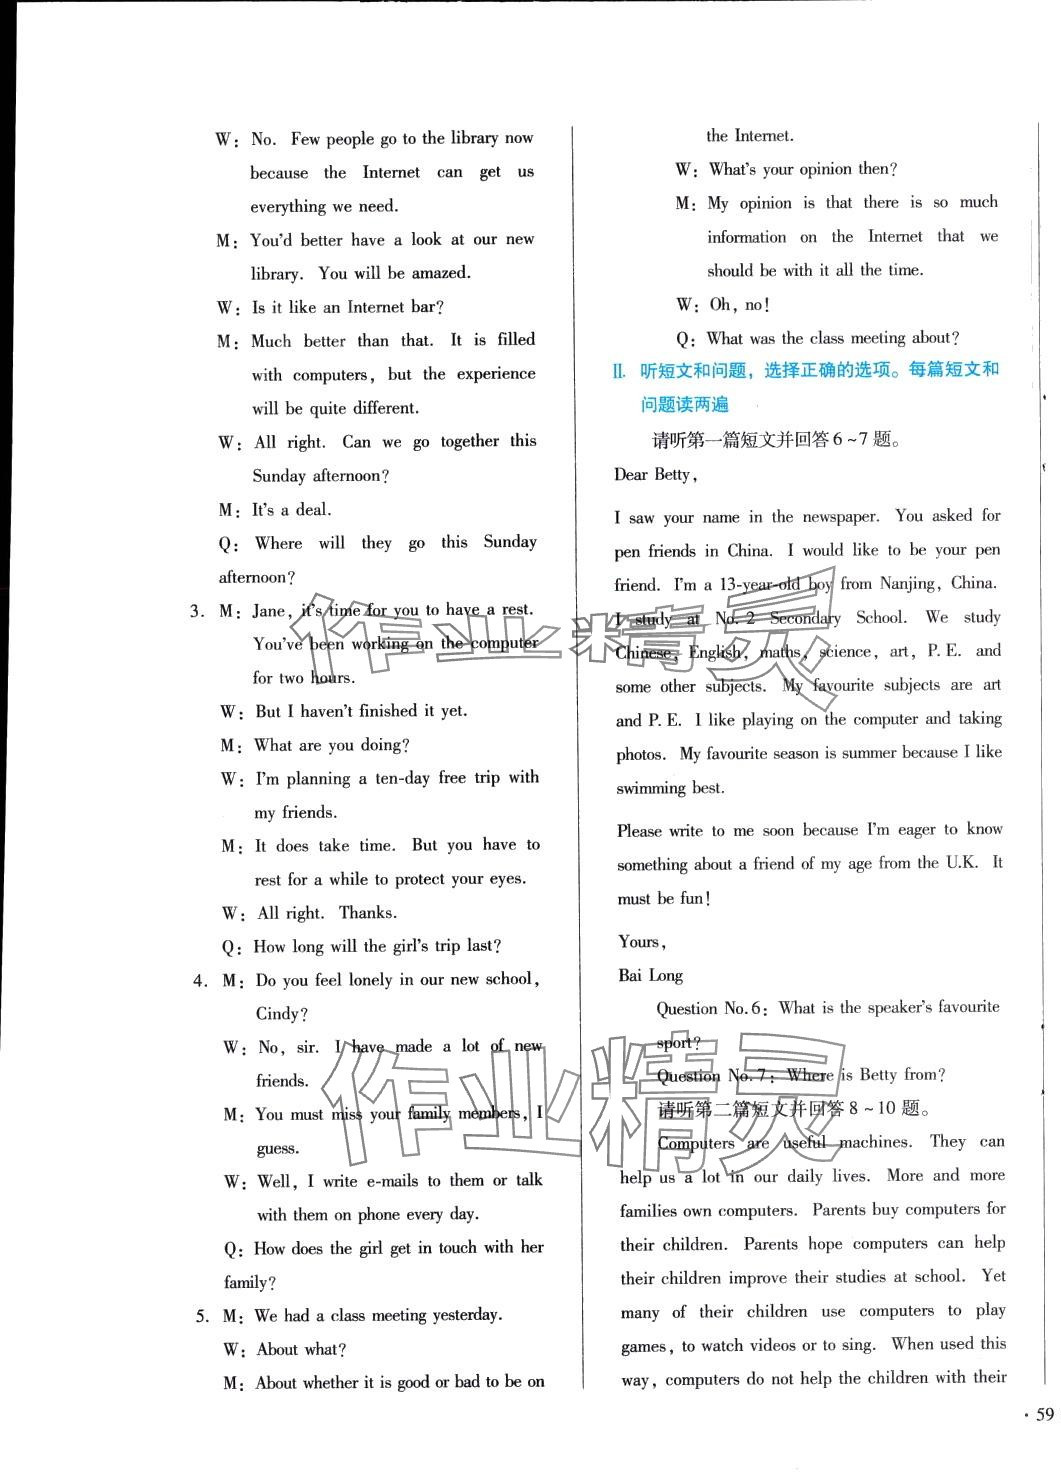 W: No. Few people go to the library now
because the Internet can get us
everything we need.
M: You'd better have a look at our new
library. You will be amazed.
W: Is it like an Internet bar?
M: Much better than that. It is filled
with computers, but the experience
will be quite different.
W: All right. Can we go together this
Sunday afternoon?
M: It's a deal.
Q: Where will they go this Sunday
afternoon?
3. M: Jane, it's time for you to have a rest.
You've been working on the computer
for two hours.
W: But I haven't finished it yet.
M: What are you doing?
W: I'm planning a ten-day free trip with
my friends.
M: It does take time. But you have to
rest for a while to protect your eyes.
W: All right. Thanks.
Q: How long will the girl's trip last?
4. M: Do you feel lonely in our new school,
Cindy?
W: No, sir. I have made a lot of new
friends.
M: You must miss your family members, I
guess.
W: Well, I write e-mails to them or talk
with them on phone every day.
Q: How does the girl get in touch with her
family?
5. M: We had a class meeting yesterday.
W: About what?
M: About whether it is good or bad to be on
the Internet.
W: What's your opinion then?
M: My opinion is that there is so much
information on the Internet that we
should be with it all the time.
W: Oh, no!
Q: What was the class meeting about?
II. 听短文和问题，选择正确的选项。每篇短文和
问题读两遍
请听第一篇短文并回答6~7题。
Dear Betty,
I saw your name in the newspaper. You asked for
pen friends in China. I would like to be your pen
friend. I'm a 13-year-old boy from Nanjing, China.
I study at No. 2 Secondary School. We study
Chinese, English, maths, science, art, P.E. and
some other subjects. My favourite subjects are art
and P.E. I like playing on the computer and taking
photos. My favourite season is summer because I like
swimming best.
Please write to me soon because I'm eager to know
something about a friend of my age from the U.K. It
must be fun!
Yours,
Bai Long
Question No.6: What is the speaker's favourite
sport?
Question No.7: Where is Betty from?
请听第二篇短文并回答8~10题。
Computers are useful machines. They can
help us a lot in our daily lives. More and more
families own computers. Parents buy computers for
their children. Parents hope computers can help
their children improve their studies at school. Yet
many of their children use computers to play
games, to watch videos or to sing. When used this
way, computers do not help the children with their
· 59
作业精灵
作业精灵